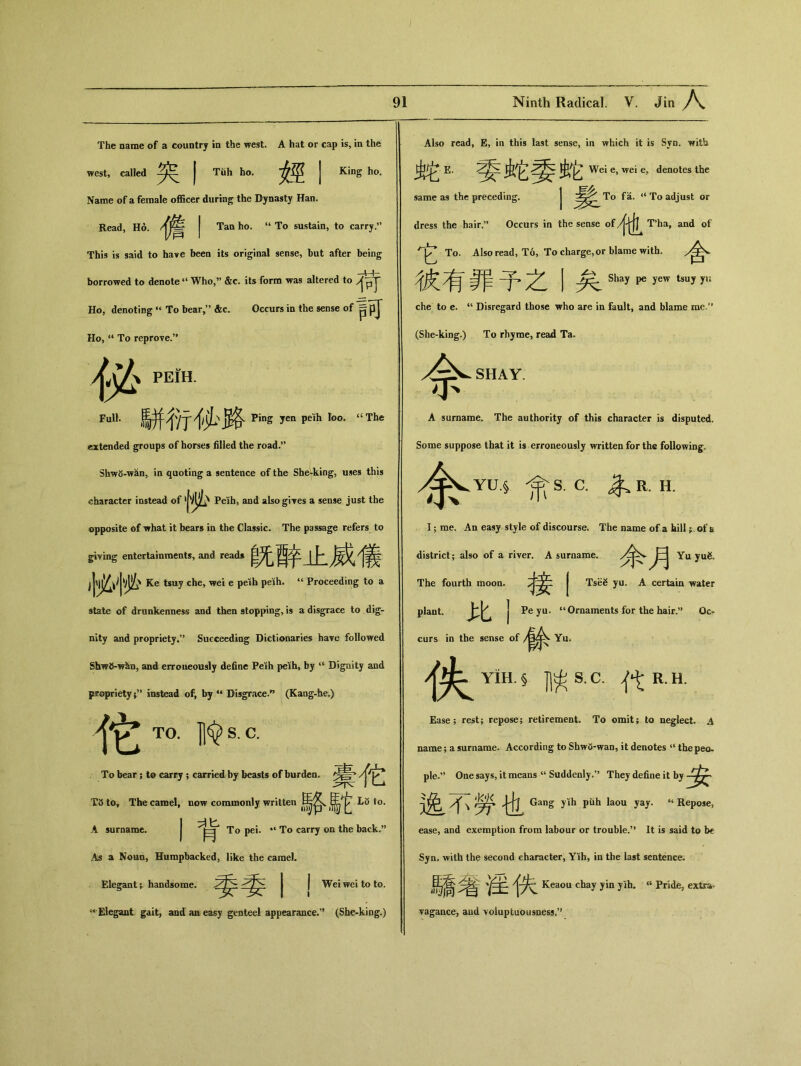 91 Ninth Radical. V. Jin 人
The name of a country in the west. A hat or cap is, in the
west, called 突 | Tüh ho. | King ho.
Name of a female officer during the Dynasty Han.
Read, Hó. 儋 | Tan ho. “ To sustain, to carry.”
This is said to have been its original sense, but after being
borrowed to denote “ Who,” &c. its form was altered to 荷
Ho, denoting “ To bear,” &c. Occurs in the sense of 訶
Ho, “ To reprove.”
佖 PEĬH.
Full. 駢衍佖路 Ping yen peĭh loo. “ The
extended groups of horses filled the road.”
Shwŏ-wăn, in quoting a sentence of the She-king, uses this
character instead of 怭 Peĭh, and also gives a sense just the
opposite of what it bears in the Classic. The passage refers to
giving entertainments, and reads 旣醉止威儀
怭怭 Ke tsuy che, wei e peĭh peĭh. “ Proceeding to a
state of drunkenness and then stopping, is a disgrace to dig-
nity and propriety.” Succeeding Dictionaries have followed
Shwŏ-wăn, and erroneously define Peĭh peĭh, by “ Dignity and
propriety;” instead of, by “ Disgrace.” (Kang-he.)
佗 TO. S. C.
To bear; to carry; carried by beasts of burden. 橐佗
Tŏ to, The camel, now commonly written 駱駝 Lŏ to.
A surname. | 背 To pei. “ To carry on the back.”
As a Noun, Humpbacked, like the camel.
Elegant; handsome. 委委 | | Wei wei to to.
“ Elegant gait, and an easy genteel appearance.” (She-king.)
Also read, E, in this last sense, in which it is Syn. with
蛇 E. 委蛇委蛇 Wei e, wei e, denotes the
same as the preceding. | 髮 To fă. “ To adjust or
dress the hair.” Occurs in the sense of 他 T'ha, and of
它 To. Also read, Tó, To charge, or blame with. 舍
彼有罪予之 | 矣 Shay pe yew tsuy yu
che to e. “ Disregard those who are in fault, and blame me.”
(She-king.) To rhyme, read Ta.
佘 SHAY.
A surname. The authority of this character is disputed.
Some suppose that it is erroneously written for the following.
余 YU.§ S. C. R. H.
I; me. An easy style of discourse. The name of a hill; of a
district; also of a river. A surname. 余月 Yu yuĕ.
The fourth moon. 接 | Tsëĕ yu. A certain water
plant. 比 | Pe yu. “ Ornaments for the hair.” Oc-
curs in the sense of 餘 Yu.
佚 YĬH.§ S. C. R. H.
Ease; rest; repose; retirement. To omit; to neglect. A
name; a surname. According to Shwŏ-wan, it denotes “ the peo-
ple.” One says, it means “ Suddenly.” They define it by 安
逸不勞也 Gang yĭh pŭh laou yay. “ Repose,
ease, and exemption from labour or trouble.” It is said to be
Syn. with the second character, Yĭh, in the last sentence.
驕奢淫佚 Keaou chay yin yĭh. “ Pride, extra-
vagance, and voluptuousness.”